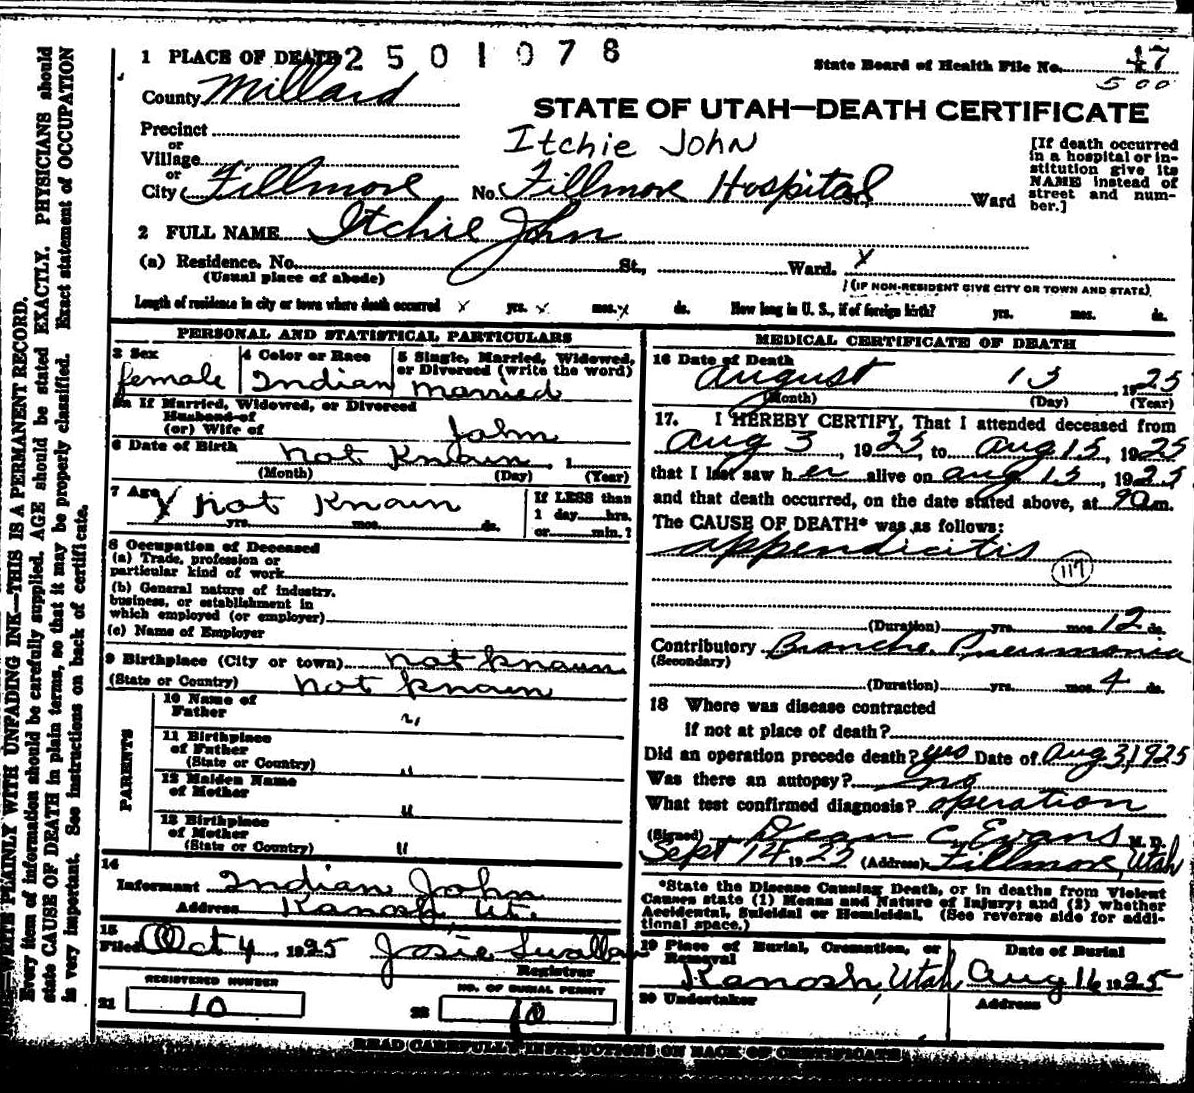 1 PLACE OF DEATH 2501078
State Board of Health File No. 47
500
County Millard
STATE OF UTAH—DEATH CERTIFICATE
Precinct
or
Village
Itchie John
or
City Fillmore No. Fillmore Hospital St., Ward
[If death occurred in a hospital or in-
stitution give its
NAME instead of
street and num-
ber.]
2 FULL NAME Itchie John
(a) Residence, No. St., Ward. X
(Usual place of abode)
(IF NON-RESIDENT GIVE CITY OR TOWN AND STATE)
Length of residence in city or town where death occurred x yrs. x mos. x ds. How long in U. S., if of foreign birth? yrs. mos. ds.
PERSONAL AND STATISTICAL PARTICULARS
3 Sex
female
4 Color or Race
Indian
5 Single, Married, Widowed,
or Divorced (write the word)
Married
5a If Married, Widowed, or Divorced
Husband of
(or) Wife of John
6 Date of Birth not Known, 1
(Month) (Day) (Year)
7 Age not Known
yrs. mos. ds.
If LESS than
1 day hrs.
or min.?
8 Occupation of Deceased
(a) Trade, profession or
particular kind of work
(b) General nature of industry,
business, or establishment in
which employed (or employer)
(c) Name of Employer
9 Birthplace (City or town) not known
(State or Country) not known
PARENTS
10 Name of
Father "
11 Birthplace
of Father
(State or Country) "
12 Maiden Name
of Mother "
13 Birthplace
of Mother
(State or Country) "
14
Informant Indian John
Address Kanosh, Ut.
15
Filed Oct 4, 1925 Josie Swallow
Registrar
REGISTERED NUMBER
21 10
NO. OF BURIAL PERMIT
22 10
MEDICAL CERTIFICATE OF DEATH
16 Date of Death
August 15, 1925
(Month) (Day) (Year)
17. I HEREBY CERTIFY, That I attended deceased from
Aug 3, 1925, to Aug 15, 1925
that I last saw her alive on Aug 15, 1925
and that death occurred, on the date stated above, at 9 a m.
The CAUSE OF DEATH* was as follows:
appendicitis
117
(Duration) yrs. mos. 12 ds.
Contributory Broncho Pneumonia
(Secondary)
(Duration) yrs. mos. 4 ds.
18 Where was disease contracted
if not at place of death?
Did an operation precede death? yes Date of Aug 3, 1925
Was there an autopsy? no
What test confirmed diagnosis? operation
(Signed) Dean C. Evans M. D.
Sept 14 1925 (Address) Fillmore, Utah
*State the Disease Causing Death, or in deaths from Violent
Causes state (1) Means and Nature of Injury; and (2) whether
Accidental, Suicidal or Homicidal. (See reverse side for addi-
tional space.)
19 Place of Burial, Cremation, or
Removal
Kanosh, Utah
Date of Burial
Aug 16 1925
20 Undertaker
Address
READ CAREFULLY INSTRUCTIONS ON BACK OF CERTIFICATE
WRITE PLAINLY WITH UNFADING INK—THIS IS A PERMANENT RECORD.
Every item of information should be carefully supplied. AGE should be stated EXACTLY. PHYSICIANS should
state CAUSE OF DEATH in plain terms, so that it may be properly classified. Exact statement of OCCUPATION
is very important. See instructions on back of certificate.